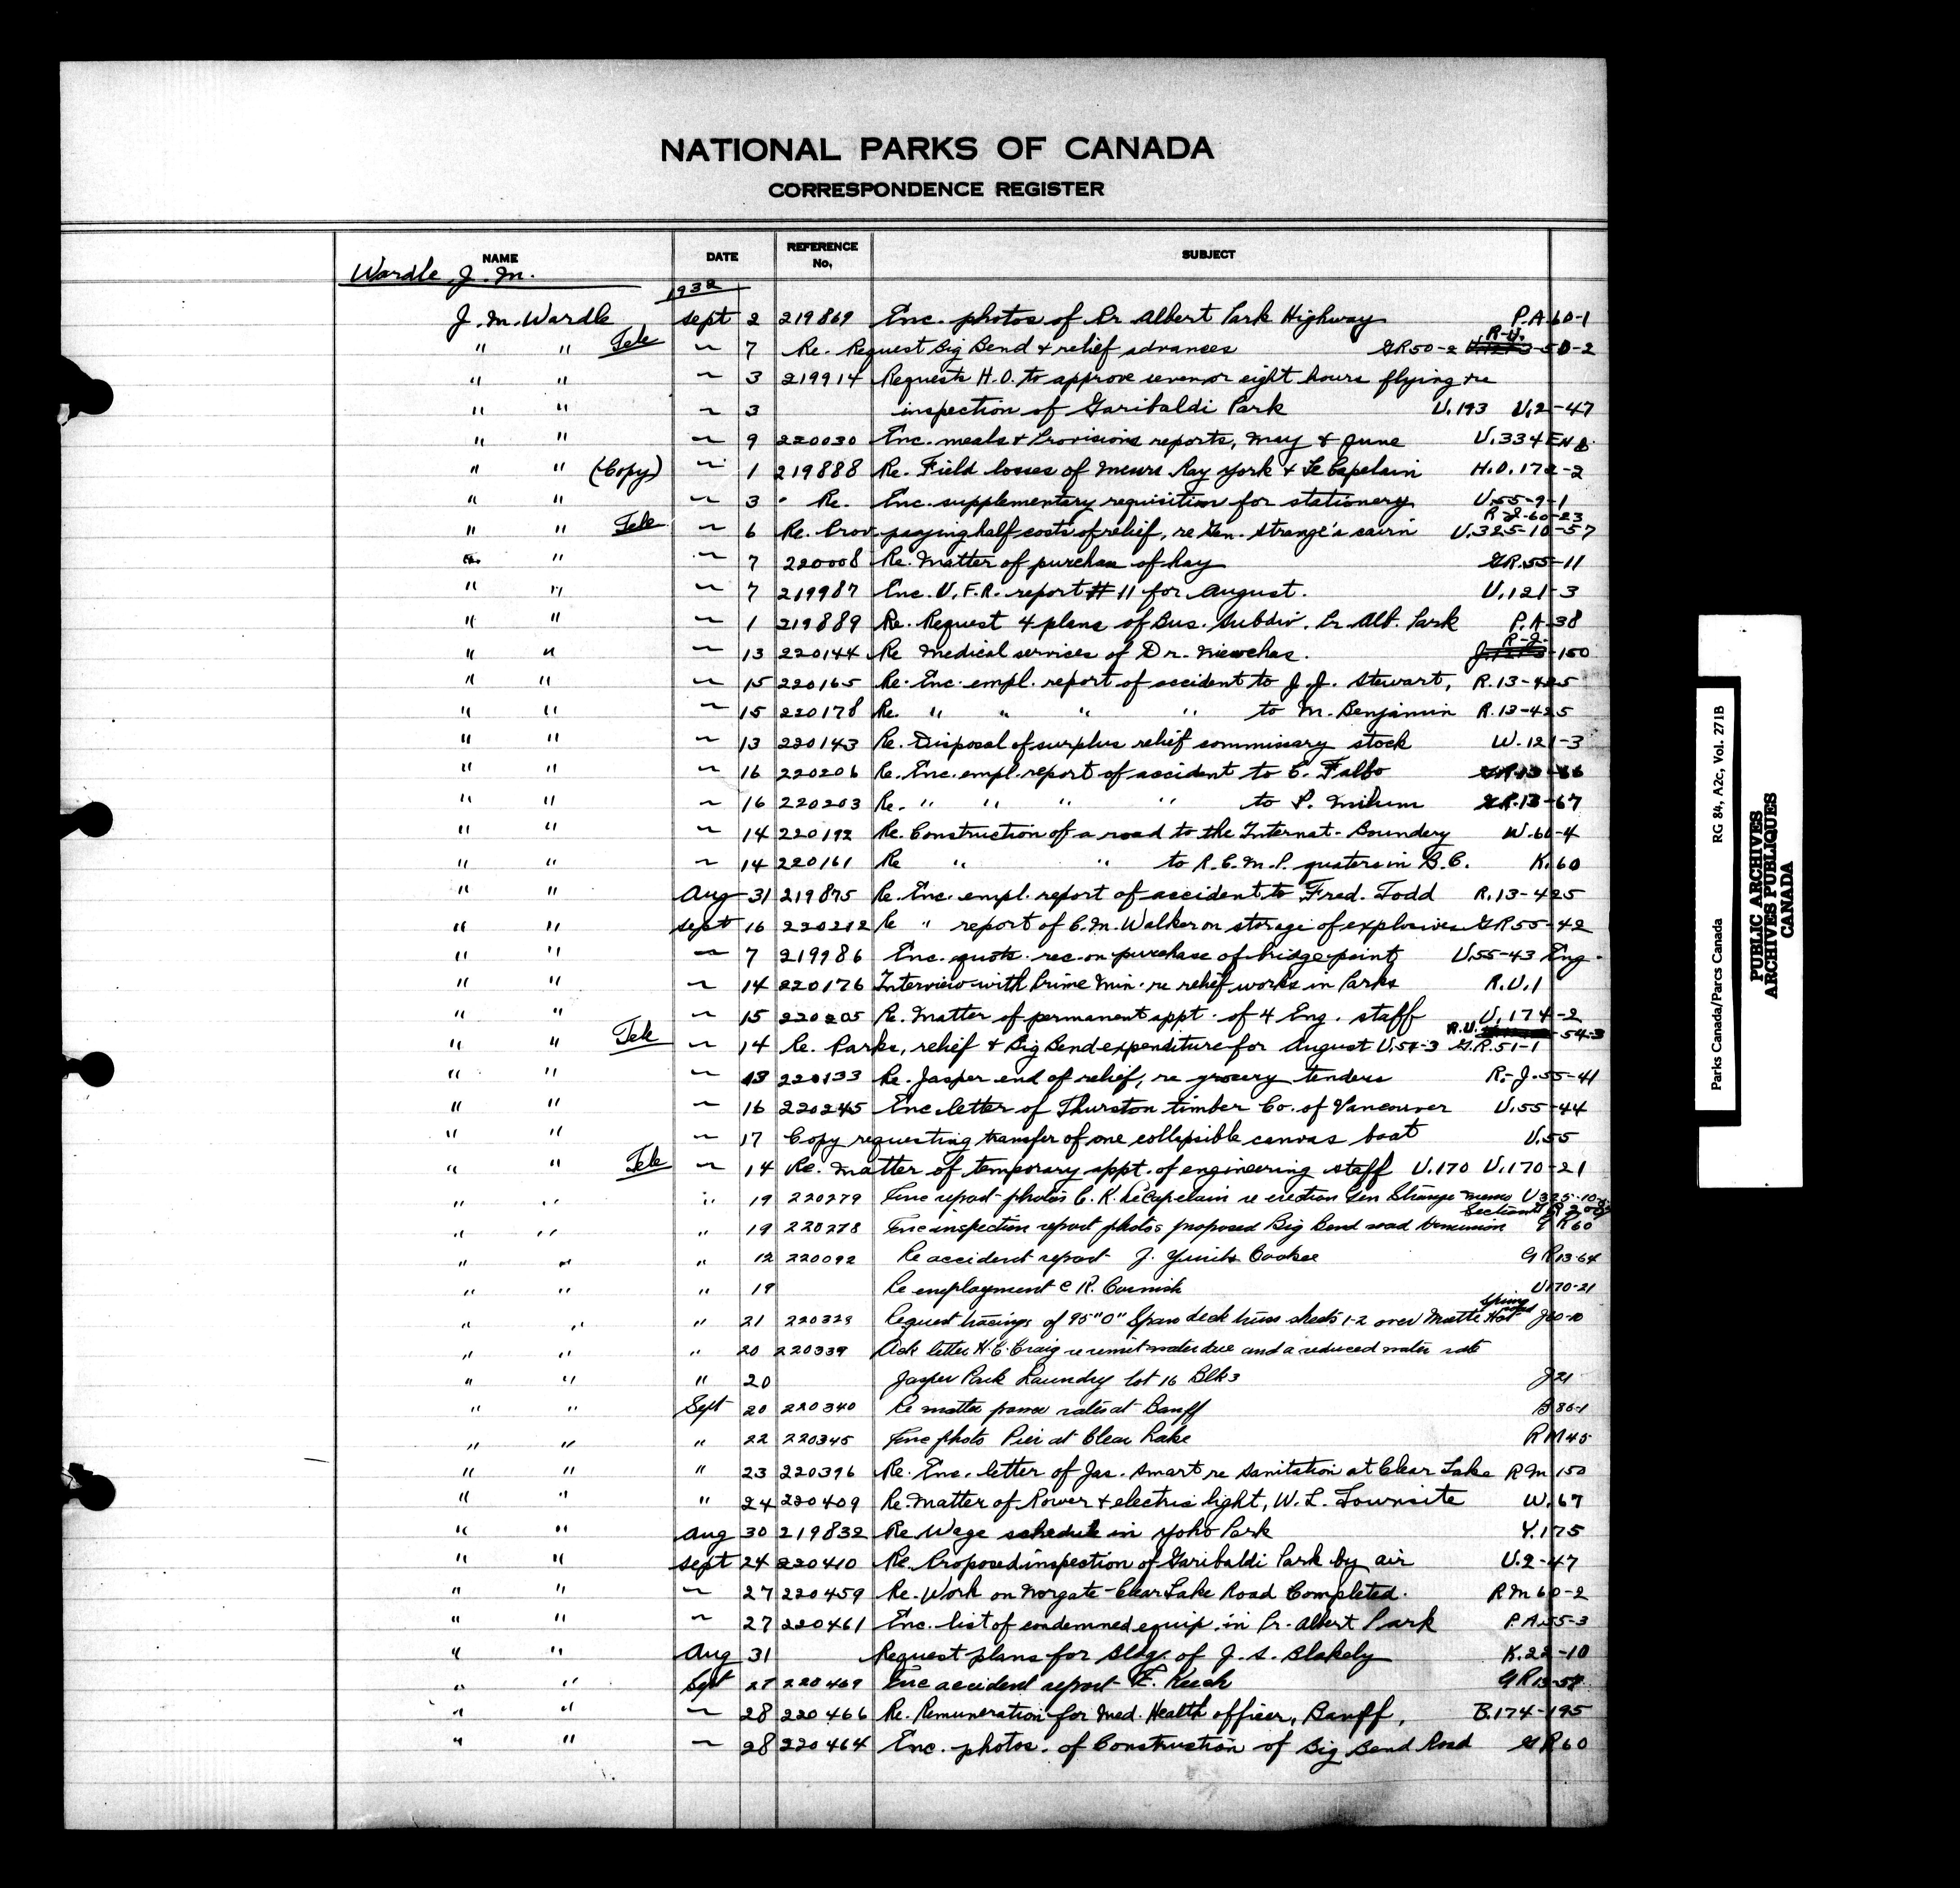 NATIONAL PARKS OF CANADA
CORRESPONDENCE REGISTER
NAME DATE REFERENCE No. SUBJECT
Wardle, J. M.
1932
J. M. Wardle Sept 2 219869 Enc. photos of Pr Albert Park Highway P.A 60-1
" " Tele 〃 7 Re. Request Big Bend & relief advances G.R 50-2 R-U. 50-2
" " 〃 3 219914 Requests H.O. to approve seven or eight hours flying re
" " 〃 3 inspection of Garibaldi Park U.193 U.2-47
" " 〃 9 220030 Enc. meals & Provisions reports, May & June U.334 EN B.
" " (Copy) 〃 1 219888 Re. Field losses of Messrs Ray York & Le Capelain H.O. 172-2
" " 〃 3 Re. Enc. supplementary requisition for stationery U.55-9-1
R-J-60-23
" " Tele 〃 6 Re. Prov. paying half costs of relief, re Gen. Strange's cairn U.325-10-57
" " 〃 7 220008 Re. Matter of purchase of hay G.R.55-11
" " 〃 7 219987 Enc. U.F.R. report #11 for August. U.121-3
" " 〃 1 219889 Re. Request 4 plans of Bus. Subdiv. Pr. Alb. Park P.A. 38
" " 〃 13 220144 Re Medical services of Dr. R-J- 150
" " 〃 15 220165 Re. Enc. empl. report of accident to J. J. Stewart, R.13-425
" " 〃 15 220178 Re. " " " " to M. Benjamin R.13-425
" " 〃 13 220143 Re. Disposal of surplus relief commissary stock W.121-3
" " 〃 16 220206 Re. Enc. empl. report of accident to C. Falbo G.R.13-66
" " 〃 16 220203 Re. " " " " to P. G.R.13-67
" " 〃 14 220192 Re. Construction of a road to the Internat. Boundery W.60-4
" " 〃 14 220161 Re " " to R.C.M.P. quaters in B.C. K.60
" " Aug 31 219875 Re. Enc. empl. report of accident to Fred. Todd R.13-425
" " Sept 16 220212 Re " report of C. M. Walker on storage of explosives G.R 55-42
" " 〃 7 219986 Enc. quots. rec. on purchase of bridge paint U.55-43 Eng.
" " 〃 14 220176 Interview with Prime Min. re relief works in Parks R.U.1
" " 〃 15 220205 Re. Matter of permanent appt. of 4 Eng. staff U.174-2
" " Tele 〃 14 Re. Parks, relief & Big Bend expenditure for August U.54-3 G.R.51-1 R.U. 54-3
" " 〃 13 220133 Re. Jasper end of relief, re grocery tenders R.-J.-55-41
" " 〃 16 220245 Enc letter of Thurston timber Co. of Vancouver U.55-44
" " 〃 17 Copy requesting transfer of one collapsible canvas boat U.55
" " Tele 〃 14 Re. matter of temporary appt. of engineering staff U.170 U.170-21
" " " 19 220279 Enc report photos C. K. LeCapelain re erection Gen Strange memo U325-10
" " " 19 220278 Enc inspection report photos proposed Big Bend road Dominion Section G R 60
" " " 12 220092 Re accident report J. Cookee G R 13-64
" " " 19 Re employment C R. Cornish U170-21
" " " 21 220329 Request tracings of 95"0" Span deck truss sheets 1-2 over Miette Hot Spring road J60-10
" " " 20 220339 Ack letter H. C. Craig re remit water due and a reduced water rate
" " " 20 Jasper Park Laundry lot 16 Blk 3 J 21
" " Sept 20 220340 Re matter power rates at Banff B 86-1
" " " 22 220345 Enc photo Pier at Clear Lake R M 45
" " " 23 220396 Re. Enc. letter of Jas. Smart re sanitation at Clear Lake R M 150
" " " 24 220409 Re. Matter of Power & electric light, W. L. Townsite W.67
" " Aug 30 219832 Re Wage schedule in Yoho Park Y.175
" " Sept 24 220410 Re. Proposed inspection of Garibaldi Park by air U.2-47
" " 〃 27 220459 Re. Work on Norgate-Clear Lake Road Completed. R M 60-2
" " 〃 27 220461 Enc. list of condemned equip. in Pr. Albert Park P.A.55-3
" " Aug 31 Request plans for bldg. of J. S. Blakely K.22-10
" " Sept 27 220469 Enc accident report E. Keech G R 13-58
" " 〃 28 220466 Re. Remuneration for Med. Health officer, Banff, B.174-195
" " 〃 28 220464 Enc. photos. of Construction of Big Bend Road G R 60
Parks Canada/Parcs Canada RG 84, A2c, Vol. 271B
PUBLIC ARCHIVES
ARCHIVES PUBLIQUES
CANADA